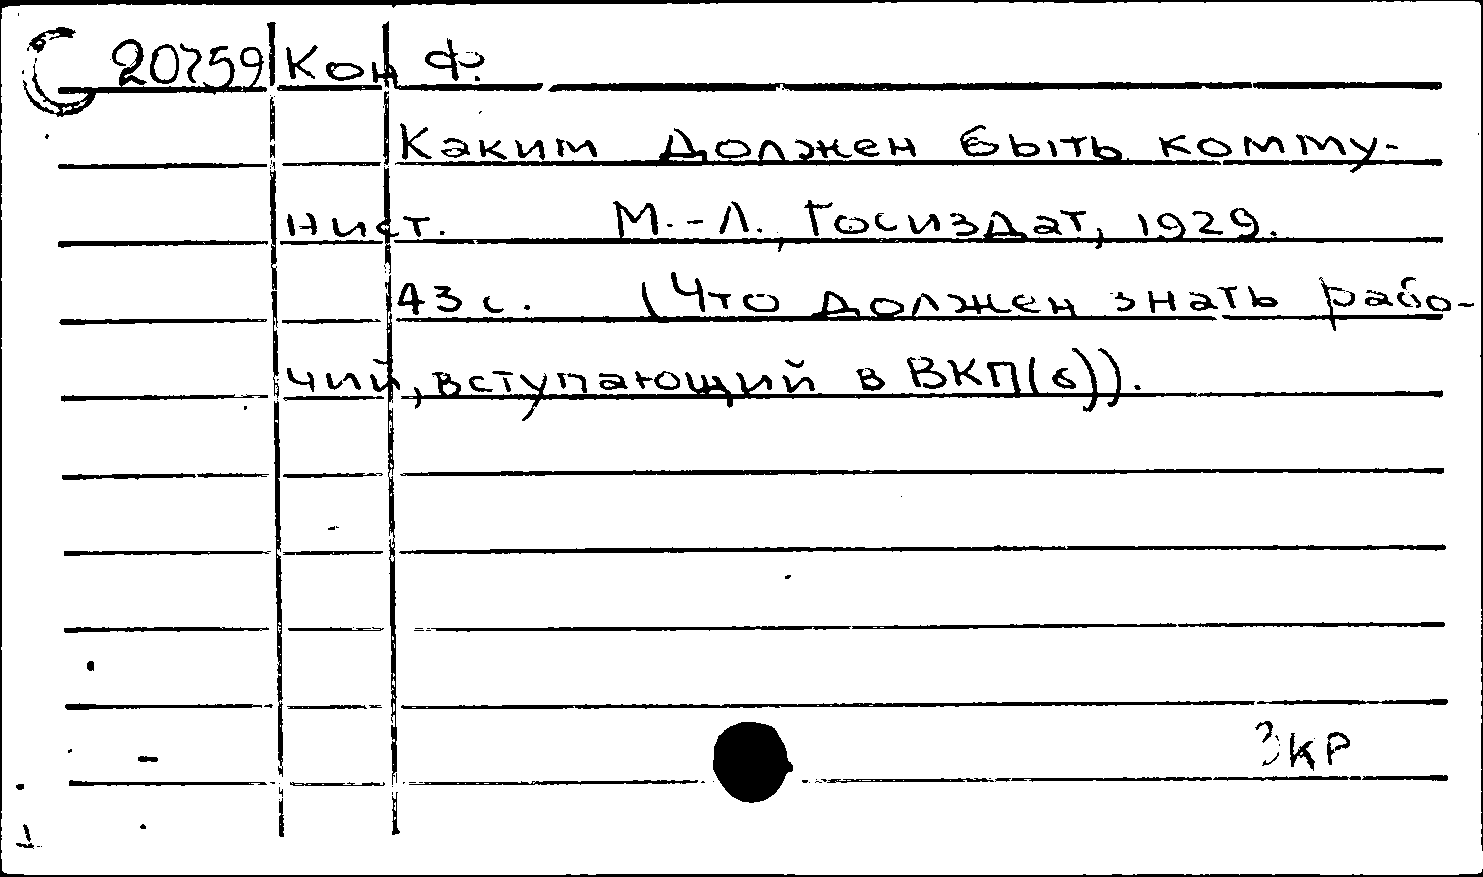 20759 Кон Ф.
Каким должен быть комму-
нист. М.-Л., Госиздат, 1929.
43 с. (Что должен знать рабо-
чий, вступающий в ВКП(б)).
3КР